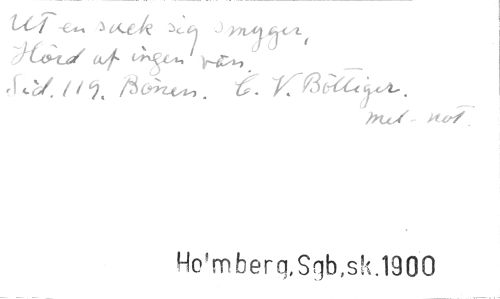 Ut en suck sig smyger,
Hörd af ingen vän.
Sid. 119. Bönen. C. V. Böttiger.
mel-not.
Holmberg, Sgb, sk. 1900